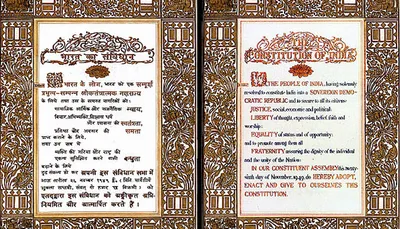 भारत का संविधान
हम भारत के लोग, भारत को एक सम्पूर्ण
प्रभुत्व-सम्पन्न लोकतंत्रात्मक गणराज्य
बनाने के लिये, तथा उस के समस्त नागरिकों को:
सामाजिक, आर्थिक और राजनैतिक न्याय,
विचार, अभिव्यक्ति, विश्वास, धर्म
और उपासना की स्वतंत्रता,
प्रतिष्ठा और अवसर की समता
प्राप्त कराने के लिये,
तथा उन सब में
व्यक्ति की गरिमा और राष्ट्र की
एकता सुनिश्चित करने वाली बन्धुता
बढ़ाने के लिये
दृढ़ संकल्प हो कर अपनी इस संविधान सभा में
आज तारीख २६ नवम्बर १९४९ ई॰ (मिति मार्गशीर्ष
शुक्ला सप्तमी, सम्वत् दो हजार छह विक्रमी) को
एतद्द्वारा इस संविधान को अङ्गीकृत, अधि-
नियमित और आत्मार्पित करते हैं।
THE
CONSTITUTION OF INDIA
WE, THE PEOPLE OF INDIA, having solemnly
resolved to constitute India into a SOVEREIGN DEMO-
CRATIC REPUBLIC and to secure to all its citizens:
JUSTICE, social, economic and political;
LIBERTY of thought, expression, belief, faith and
worship;
EQUALITY of status and of opportunity;
and to promote among them all
FRATERNITY assuring the dignity of the individual
and the unity of the Nation;
IN OUR CONSTITUENT ASSEMBLY this twenty-
sixth day of November, 1949, do HEREBY ADOPT,
ENACT AND GIVE TO OURSELVES THIS
CONSTITUTION.